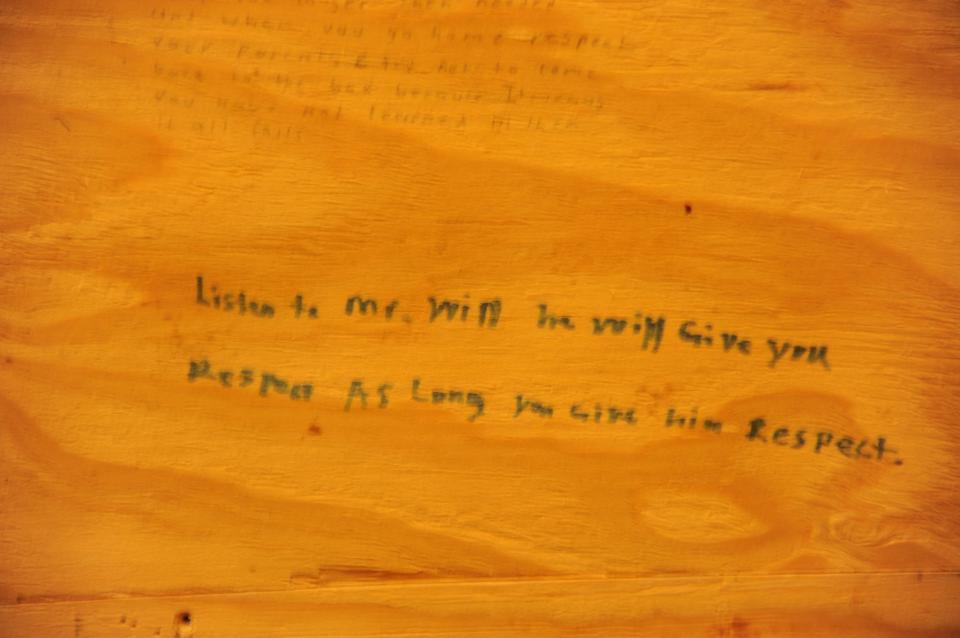 longer then needed
And when you go home respect
your parents & try not to come
back to the box because
you have not learned
it all
Listen to Mr. Will he will Give you
Respect As Long you Give him Respect.